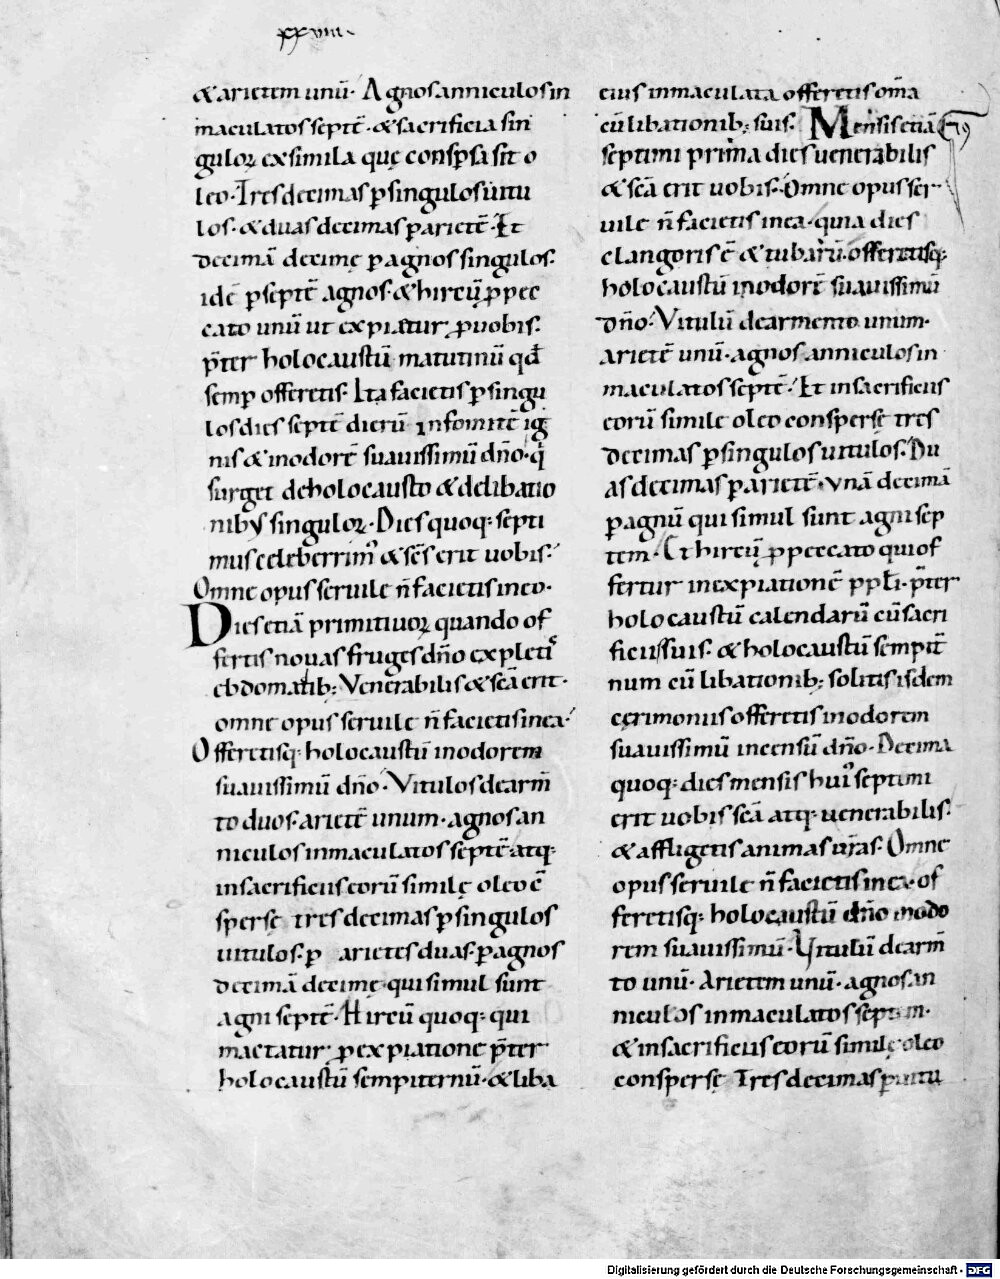 xxviiii.
& arietem unū· Agnos anniculos in
maculatos septē· & sacrificia sin
guloꝝ ex simila que conspsa sit o
leo· Tres decimas ꝑ singulos uitu
los· & duas decimas ꝑ arietē· Et
decimā decimę ꝑ agnos singulos·
idē ꝑ septē agnos· & hircū ꝓ pec
cato unū ut expiatur ꝓ uobis·
p̄ter holocaustū matutinū qđ
semꝑ offeretis· Ita facietis ꝑ singu
los dies septē dierū in fomitē ig
nis & in odorē suauissimū dn̄o· q̇
surget de holocausto & de libatio
nibus singuloꝝ· Dies quoq; septi
mus celeberrimꝰ & sc̄s erit uobis·
Omne opus seruile n̄ facietis in eo·
Dies etiā primitiuoꝝ quando of
fertis nouas fruges dn̄o expletis
ebdomatib; Venerabilis & sc̄a erit·
omne opus seruile n̄ facietis in ea·
Offeretisq; holocaustū in odorem
suauissimū dn̄o· Vitulos de arm̄
to duos· arietē unum· agnos an
niculos inmaculatos septē· atq;
in sacrificiis eorū similę oleo c̄
spersę tres decimas ꝑ singulos
uitulos· ꝑ arietes duas· ꝑ agnos
decimā decimę· qui simul sunt
agni septē· Hircū quoq; qui
mactatur ꝓ expiatione p̄ter
holocaustū sempiternū· & liba
eius inmaculata offeretis om̄a
cū libationib; suis· Mensis etiā
septimi prima dies uenerabilis
& sc̄a erit uobis· Omne opus ser
uile n̄ facietis in ea· quia dies
clangoris ē & tubarū· offeretisq;
holocaustū in odorē suauissimū
dn̄o· Vitulū de armento unum·
arietē unū· agnos anniculos in
maculatos septē· Et in sacrificiis
eorū simile oleo conspersę tres
decimas ꝑ singulos uitulos· Du
as decimas ꝑ arietē· unā decimā
ꝑ agnū qui simul sunt agni sep
tem· Et hircū ꝓ peccato qui of
fertur in expiationē ppłi· p̄ter
holocaustū calendarū cū sacri
ficiis suis· & holocaustū sempit̄
num cū libationib; solitis isdem
cerimoniis offeretis in odorem
suauissimū incensū dn̄o· Decima
quoq; dies mensis huiꝰ septimi
erit uobis sc̄a atq; uenerabilis·
& affligetis animas ur̄as· Omne
opus seruile n̄ facietis in ea· of
feretisq; holocaustū dn̄o in odo
rem suauissimū· Vitulū de arm̄
to unū· Arietem unū· agnos an
niculos inmaculatos septem·
& in sacrificiis eorū similę oleo
conspersę Tres decimas ꝑ uitu
Digitalisierung gefördert durch die Deutsche Forschungsgemeinschaft - DFG